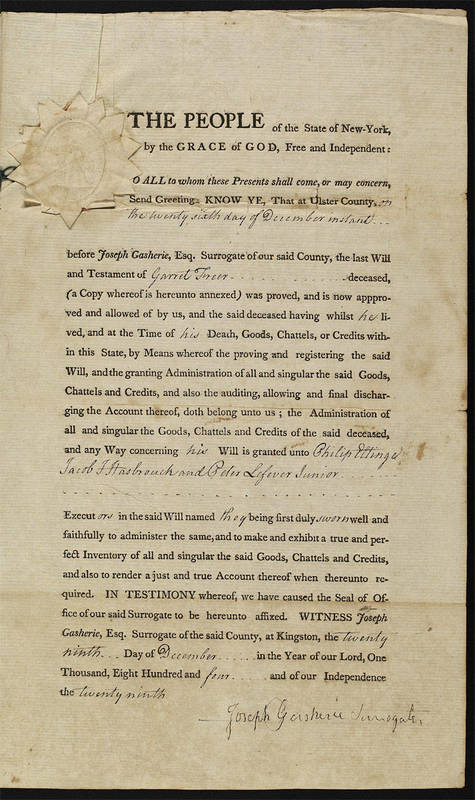 THE PEOPLE of the State of New-York,
by the GRACE of GOD, Free and Independent:
O ALL to whom these Presents shall come, or may concern,
Send Greeting: KNOW YE, That at Ulster County, on
the twenty sixth day of December instant
before Joseph Gasherie, Esq. Surrogate of our said County, the last Will
and Testament of Garret Freer deceased,
(a Copy whereof is hereunto annexed) was proved, and is now appro-
ved and allowed of by us, and the said deceased having whilst he li-
ved, and at the Time of his Death, Goods, Chattels, or Credits with-
in this State, by Means whereof the proving and registering the said
Will, and the granting Administration of all and singular the said Goods,
Chattels and Credits, and also the auditing, allowing and final dischar-
ging the Account thereof, doth belong unto us; the Administration of
all and singular the Goods, Chattels and Credits of the said deceased,
and any Way concerning his Will is granted unto Philip Eltinge
Jacob J Hasbrouck and Peter Lefever Junior
Executors in the said Will named they being first duly sworn well and
faithfully to administer the same, and to make and exhibit a true and per-
fect Inventory of all and singular the said Goods, Chattels and Credits,
and also to render a just and true Account thereof when thereunto re-
quired. IN TESTIMONY whereof, we have caused the Seal of Of-
fice of our said Surrogate to be hereunto affixed. WITNESS Joseph
Gasherie, Esq. Surrogate of the said County, at Kingston, the twenty
ninth Day of December in the Year of our Lord, One
Thousand, Eight Hundred and four and of our Independence
the twenty ninth
Joseph Gasherie Surrogate.